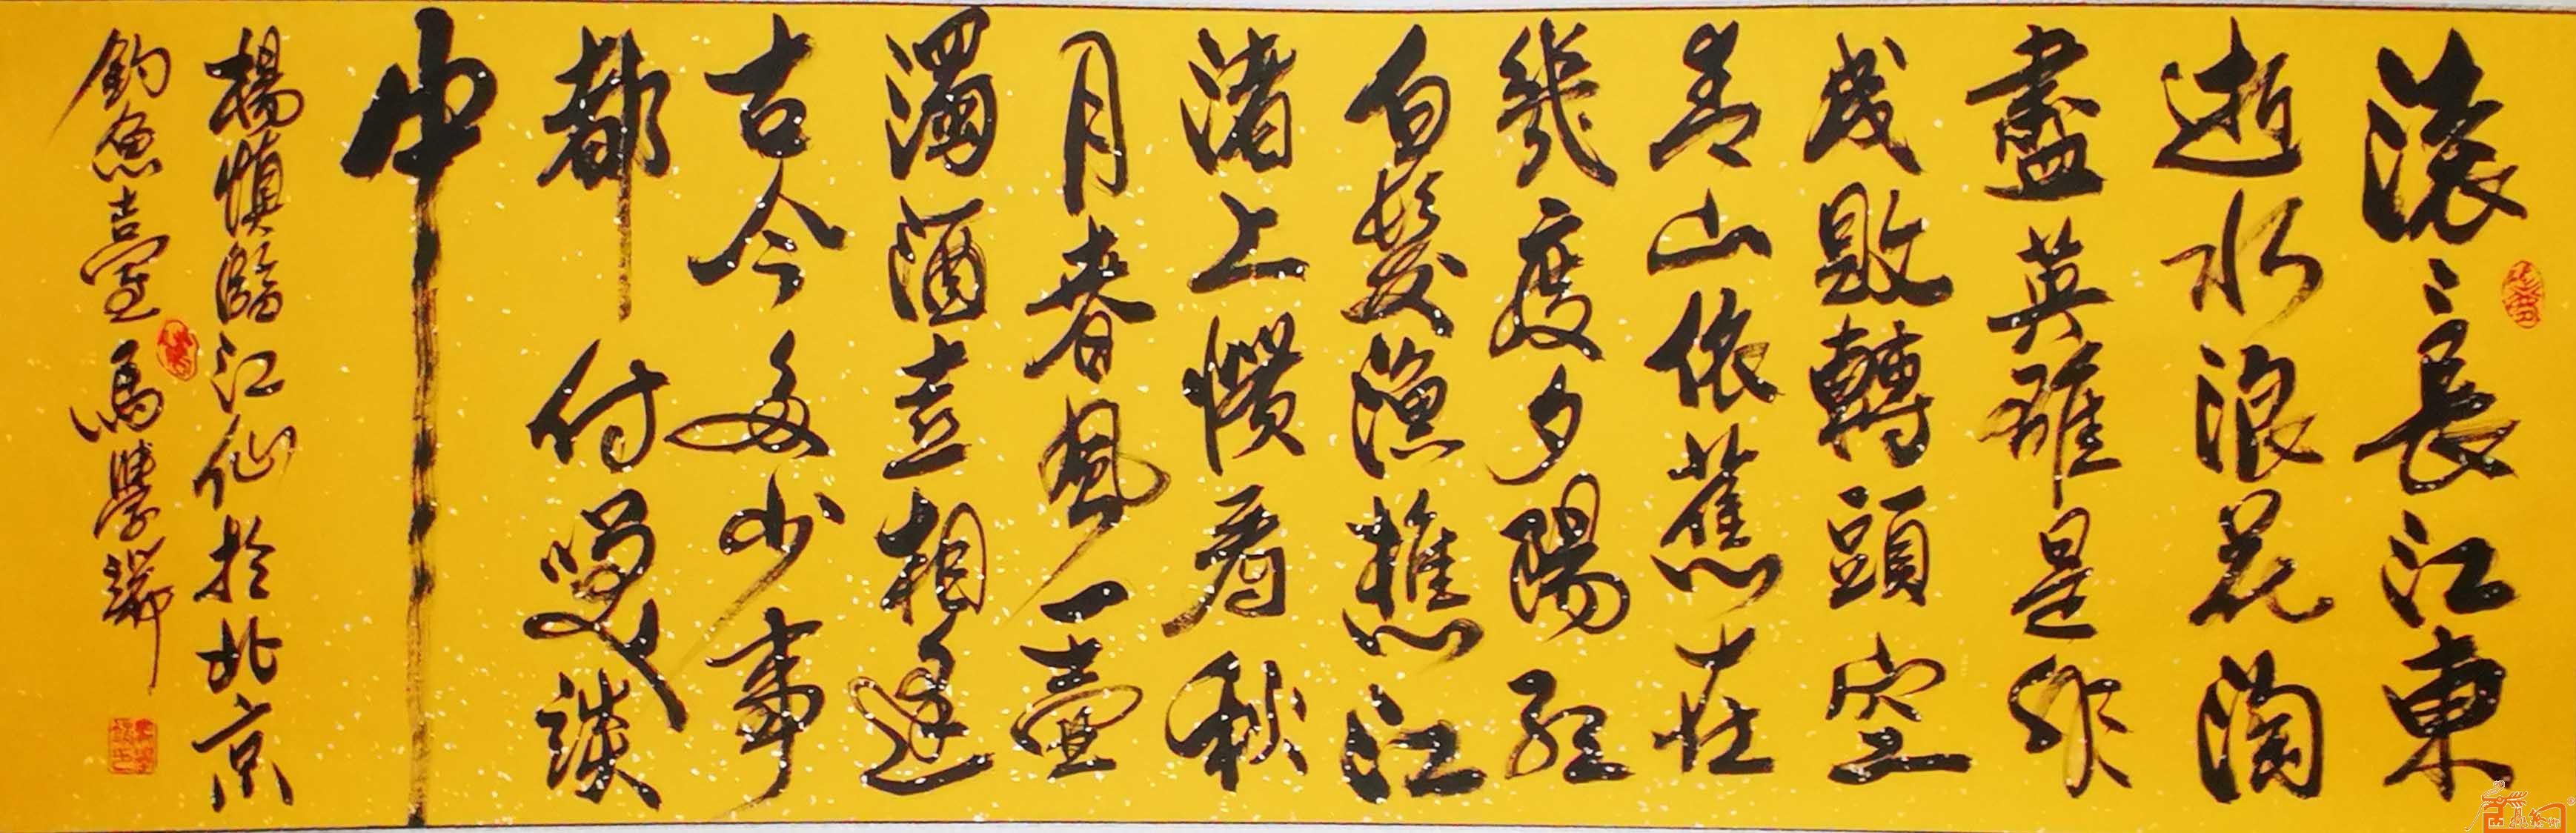 滚〻長江東
逝水浪花淘
盡英雄是非
成敗轉頭空
青山依舊在
幾度夕陽紅
白髮漁樵江
渚上慣看秋
月春風一壺
濁酒喜相逢
古今多少事
都付笑談
中
楊慎臨江仙於北京
釣魚臺馬學端